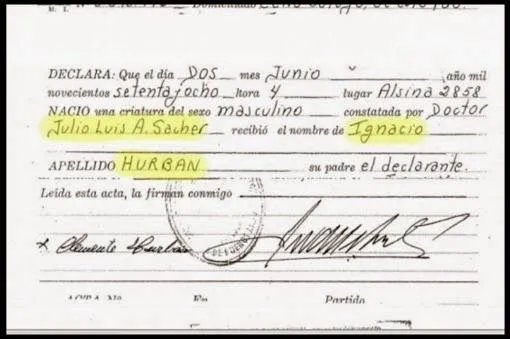 Domiciliado
DECLARA: Que el día DOS mes Junio año mil
novecientos setenta y ocho hora 4 lugar Alsina 2858
NACIO una criatura del sexo masculino constatada por Doctor
Julio Luis A. Sacher recibió el nombre de Ignacio
APELLIDO HURBAN su padre el declarante.
Leída esta acta, la firman conmigo
x Clemente Hurban